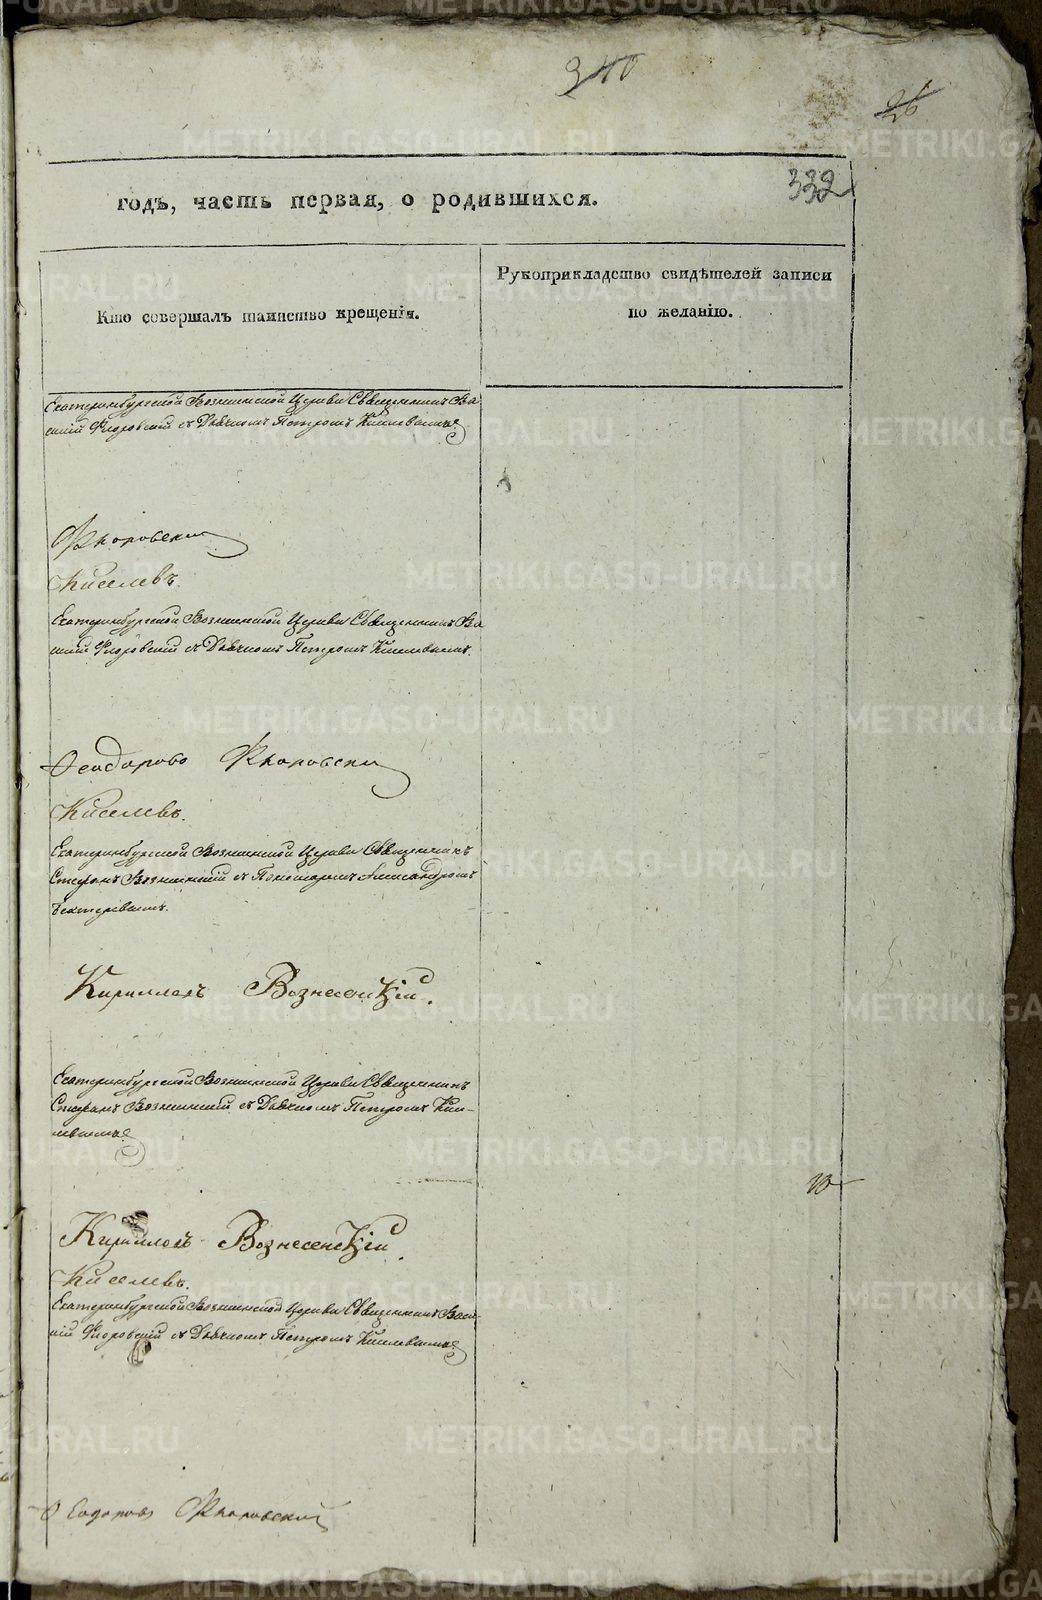 340
26
332
годъ, часть первая, о родившихся.
Кто совершалъ таинство крещенія.
Рукоприкладство свидѣтелей записи
по желанію.
Екатеринбургской Вознесенской Церкви Священникъ Ва
силій Флоровскій съ Дьячкомъ Петромъ Киселевымъ
Флоровски
Киселевъ.
Екатеринбургской Вознесенской Церкви Священникъ Ва
силій Флоровскій съ Дьячкомъ Петромъ Киселевымъ.
Флоровски
Киселевъ.
Екатеринбургской Вознесенской Церкви Священникъ
Стефанъ Вознесенскій съ Пономаремъ Александромъ
Вознесенскій.
Екатеринбургской Вознесенской Церкви Священникъ
Стефанъ Вознесенскій съ Дьячкомъ Петромъ Кисе-
левымъ
Вознесенскій
Киселевъ.
Екатеринбургской Вознесенской Церкви Священникъ Васи-
лій Флоровскій съ Дьячкомъ Петромъ Киселевымъ
Флоровскій
METRIKI.GASO-URAL.RU